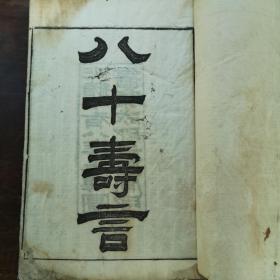 八十壽言